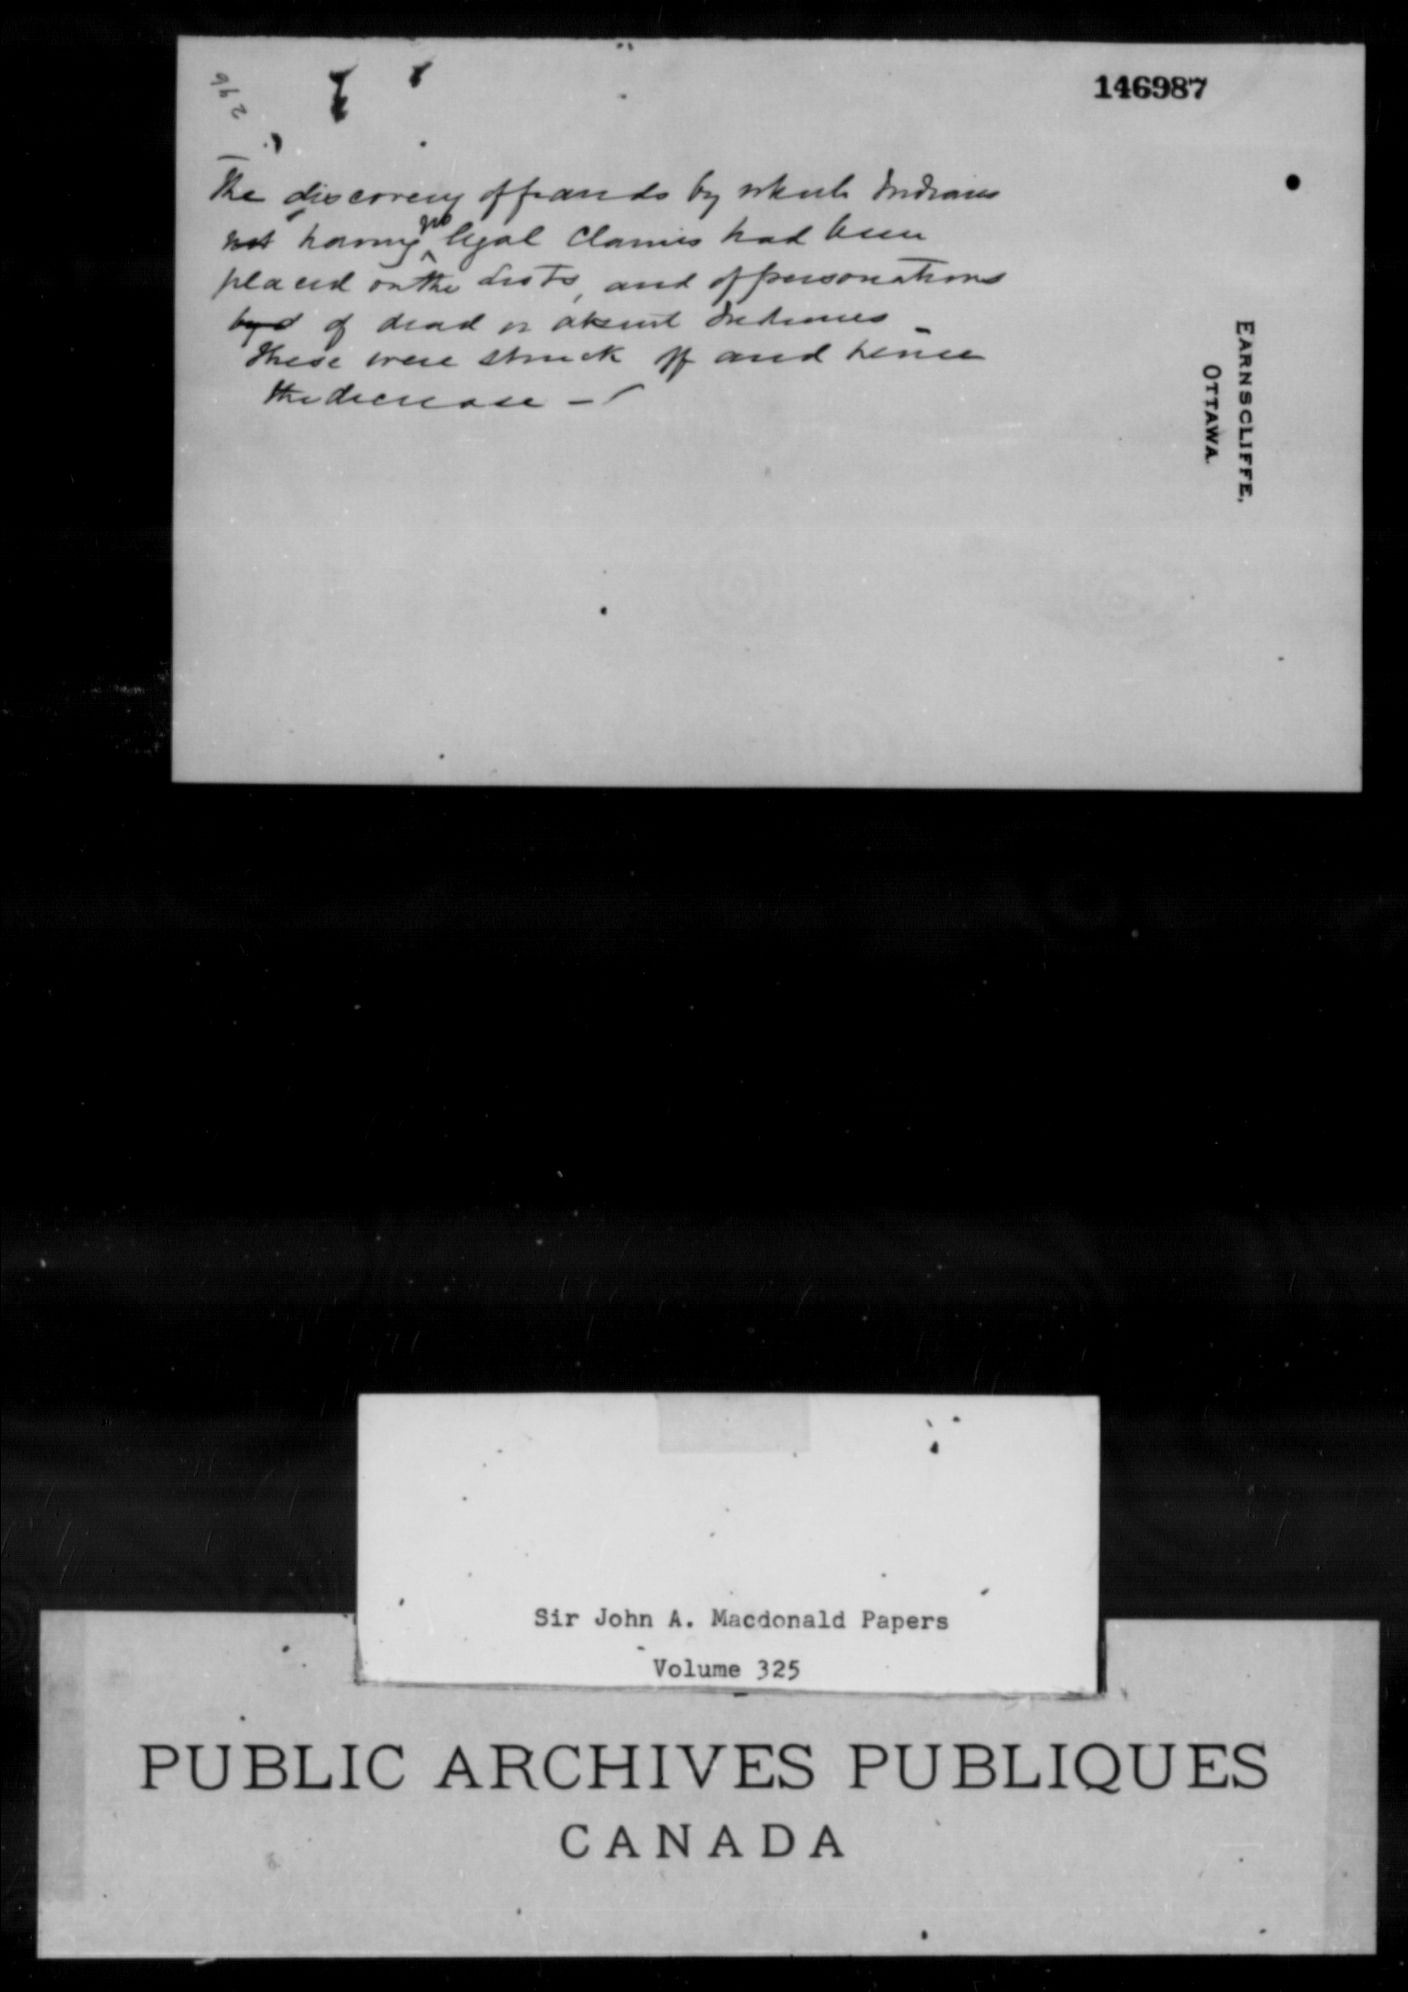 146987
296
The discovery of frauds by which Indians
not having no legal claims had been
placed on the lists, and of personations
of dead or absent Indians -
These were struck off and hence
the decrease -
EARNSCLIFFE,
OTTAWA.
Sir John A. Macdonald Papers
Volume 325
PUBLIC ARCHIVES PUBLIQUES
CANADA